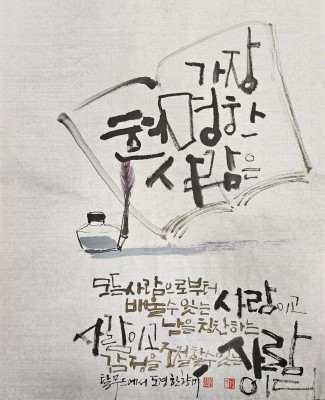 가장
현명한
사람은
모든사람으로부터
배울수있는 사람이고
남을 칭찬하는
사람이고
감정을 조절할수있는 사람
이다
탈무드에서